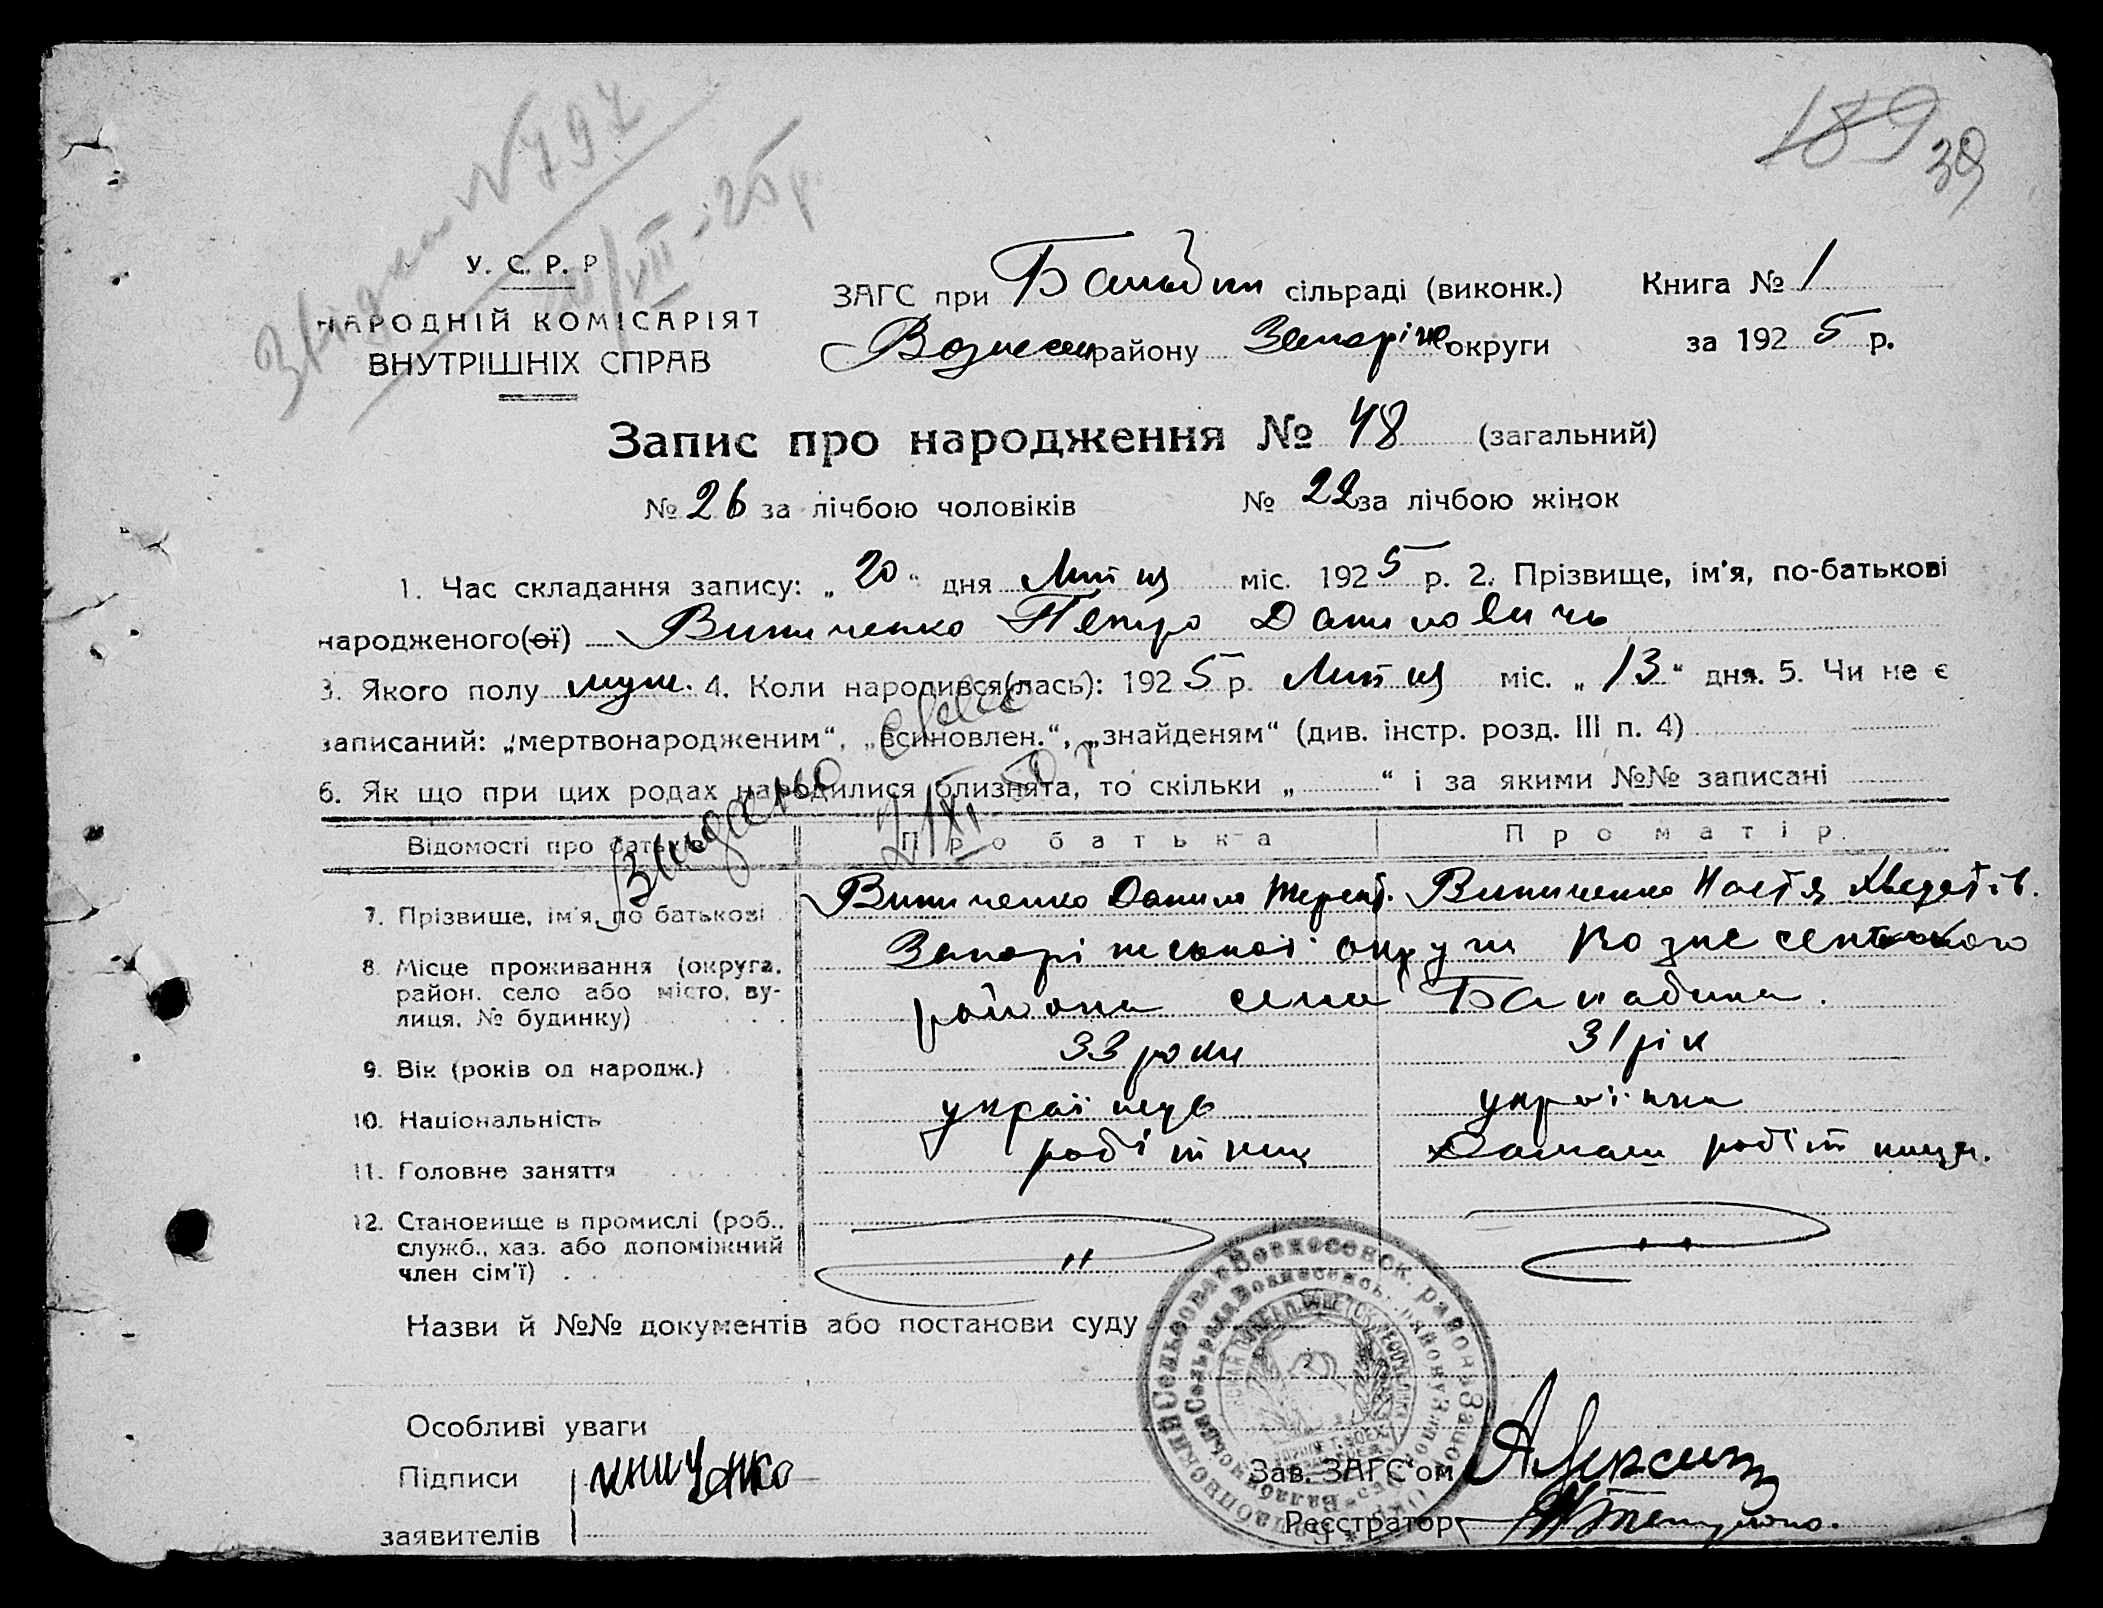 189 39
У. С. Р. Р.
НАРОДНІЙ КОМІСАРІЯТ
ВНУТРІШНІХ СПРАВ
ЗАГС при сільраді (виконк.) Книга № 1
Вознесен району Запоріж округи за 1925 р.
Запис про народження № 48 (загальний)
№ 26 за лічбою чоловіків № 22 за лічбою жінок
1. Час складання запису: „20“ дня Липця міс. 1925 р. 2. Прізвище, ім'я, по-батькові
народженого(ої) Винниченко Петро Данилович
3. Якого полу муж. 4. Коли народився(лась): 1925 р. Липця міс. „13“ дня. 5. Чи не є
записаний: „мертвонародженим“, „всиновлен.“, „знайденям“ (див. інстр. розд. III п. 4)
6. Як що при цих родах народилися близнята, то скільки „ “ і за якими №№ записані
Видано
Відомості про батьків Про батька Про матір.
7. Прізвище, ім'я, по батькові Винниченко Данило Терент. Винниченко Настя
8. Місце проживання (округа, район, село або місто, вулиця, № будинку) Запоріжської округи Вознесенського
района села Балабина.
9. Вік (років од народж.) 33 роки 31 рік
10. Національність українць українка
11. Головне заняття робітник Домашн робітниця.
12. Становище в промислі (роб.,
служб., хаз. або допоміжний
член сім'ї)
Назви й №№ документів або постанови суду
Особливі уваги
Підписи
заявителів
Зав. ЗАГС'ом
Реєстратор